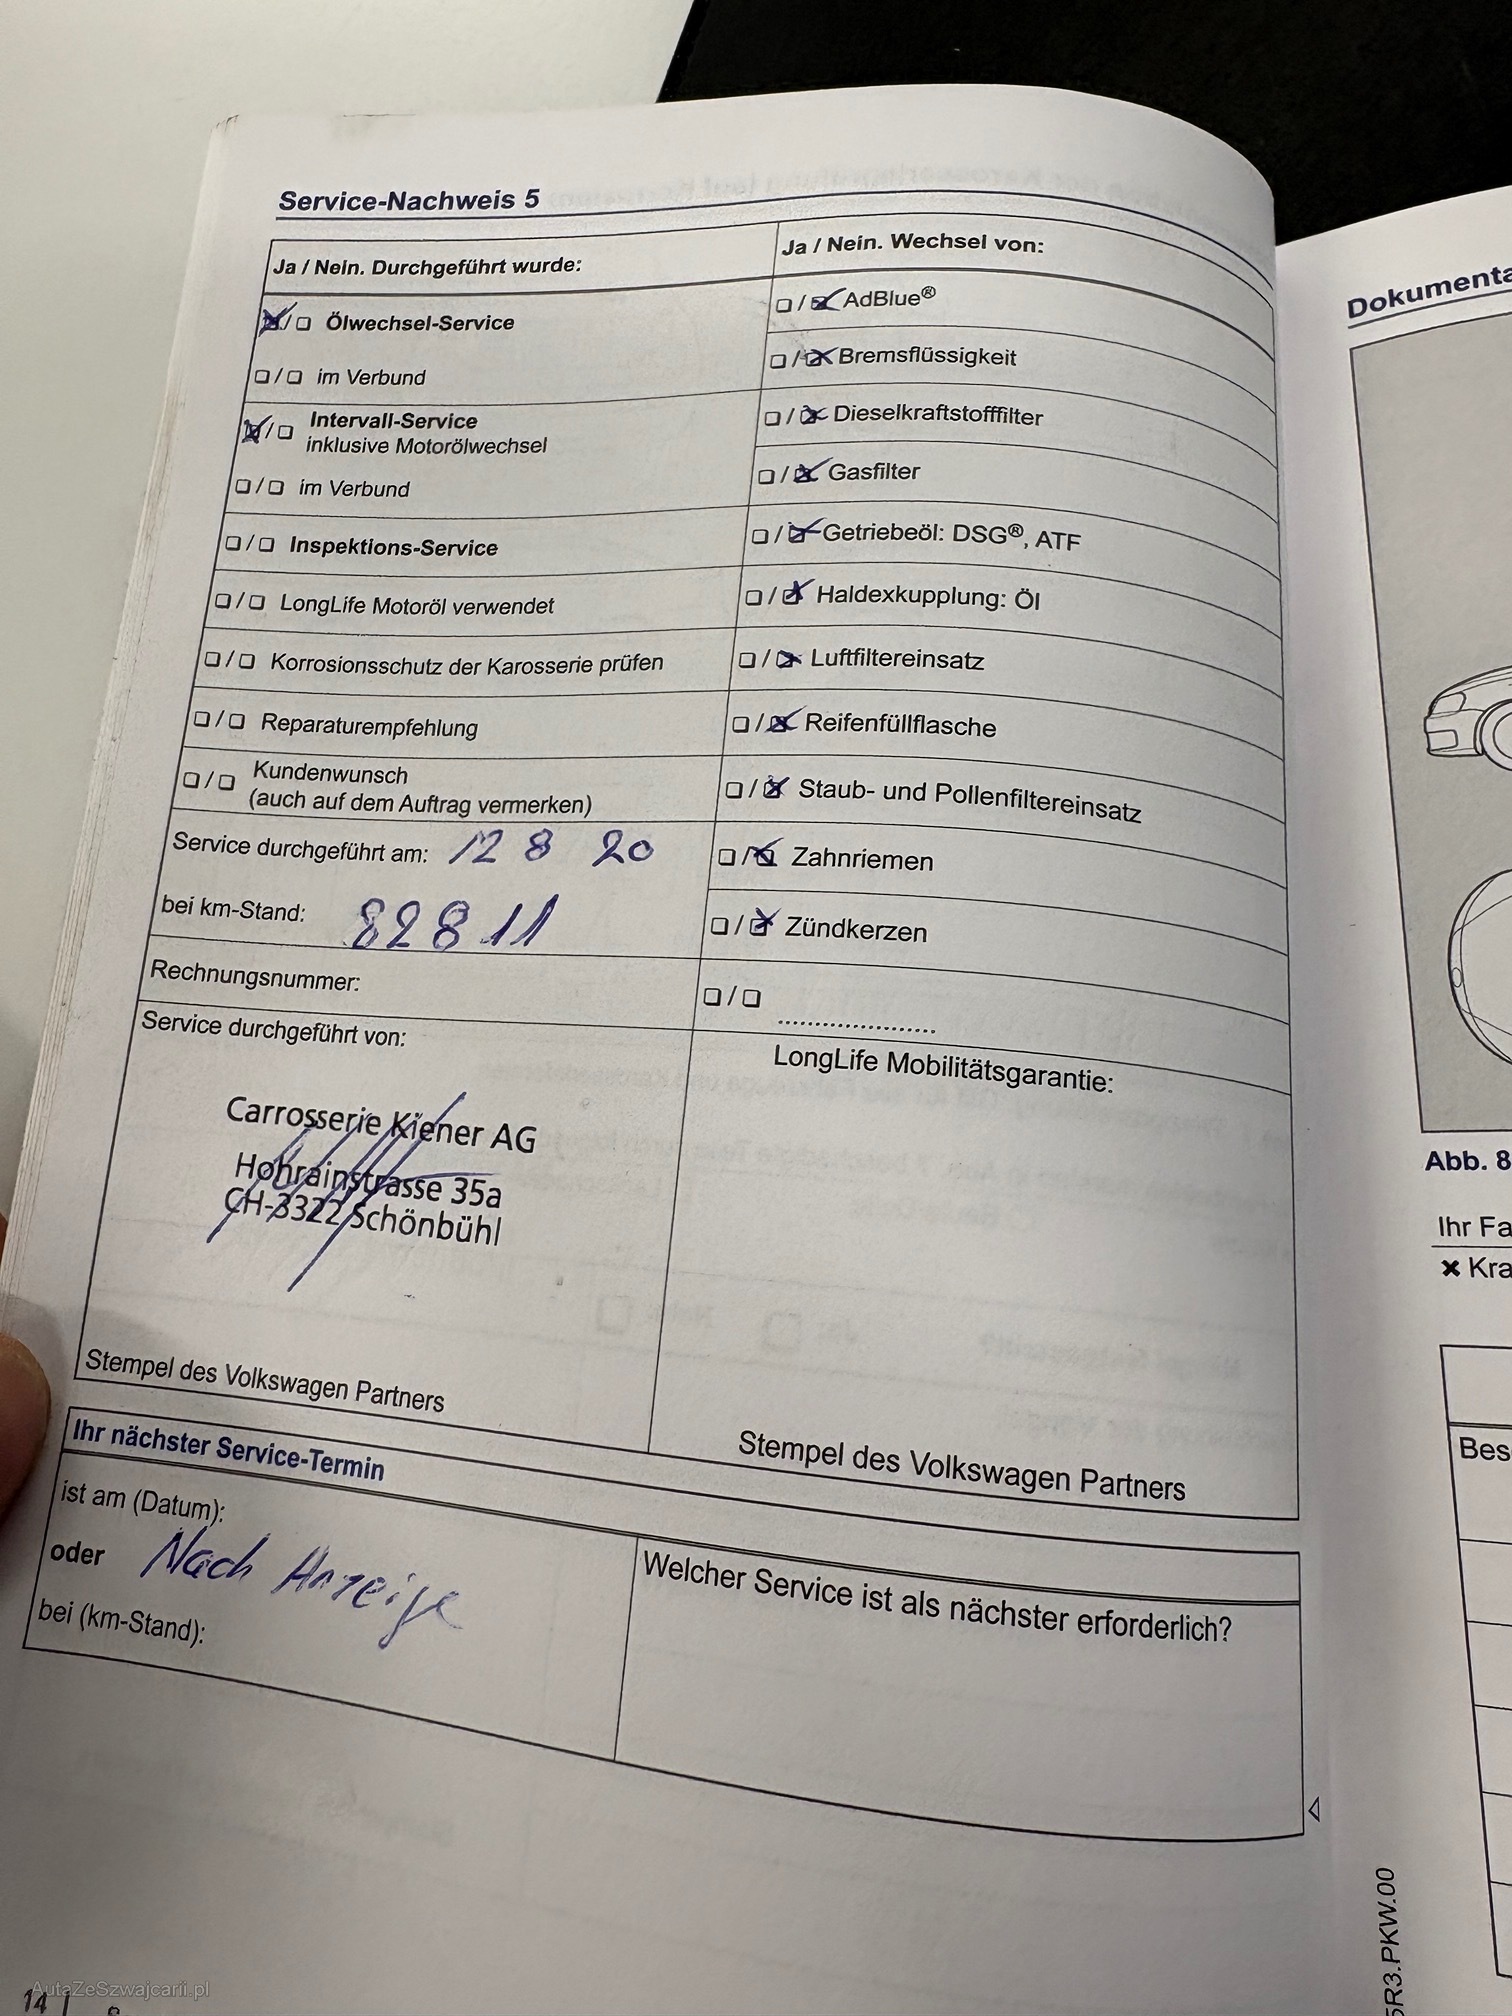 Service-Nachweis 5
Ja / Nein. Durchgeführt wurde:
☒/☐ Ölwechsel-Service
☐/☐ im Verbund
☒/☐ Intervall-Service
inklusive Motorölwechsel
☐/☐ im Verbund
☐/☐ Inspektions-Service
☐/☐ LongLife Motoröl verwendet
☐/☐ Korrosionsschutz der Karosserie prüfen
☐/☐ Reparaturempfehlung
☐/☐ Kundenwunsch
(auch auf dem Auftrag vermerken)
Service durchgeführt am: 12 8 20
bei km-Stand: 82811
Rechnungsnummer:
Service durchgeführt von:
Carrosserie Kiener AG
Hohrainstrasse 35a
CH-3322 Schönbühl
Stempel des Volkswagen Partners
Ja / Nein. Wechsel von:
☐/☒ AdBlue®
☐/☒ Bremsflüssigkeit
☐/☒ Dieselkraftstofffilter
☐/☒ Gasfilter
☐/☒ Getriebeöl: DSG®, ATF
☐/☒ Haldexkupplung: Öl
☐/☒ Luftfiltereinsatz
☐/☒ Reifenfüllflasche
☐/☒ Staub- und Pollenfiltereinsatz
☐/☒ Zahnriemen
☐/☒ Zündkerzen
☐/☐ ......................
LongLife Mobilitätsgarantie:
Stempel des Volkswagen Partners
Ihr nächster Service-Termin
ist am (Datum):
oder Nach Anzeige
bei (km-Stand):
Welcher Service ist als nächster erforderlich?
14
AutaZeSzwajcarii.pl
Dokumenta
Abb. 8
Ihr Fa
✖ Kra
Bes
5R3.PKW.00